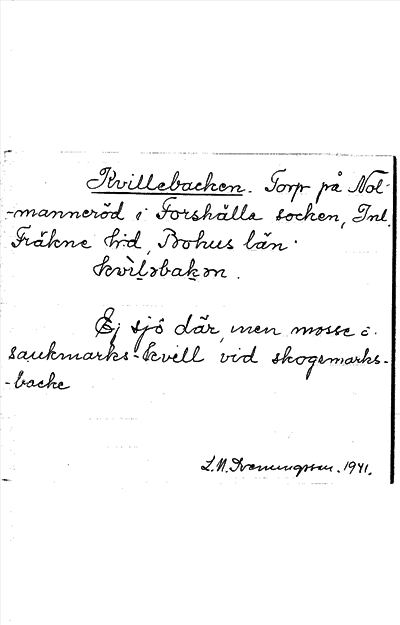 Kvillebacken. Torp på Nol-
-manneröd i Forshälla socken, Inl.
Fräkne h:d, Bohus län.
kvìl̥əbak̥ən.
Ej sjö där, men mosse o.
saukmarks-kvell vid skogsmarks-
-backe
1941.